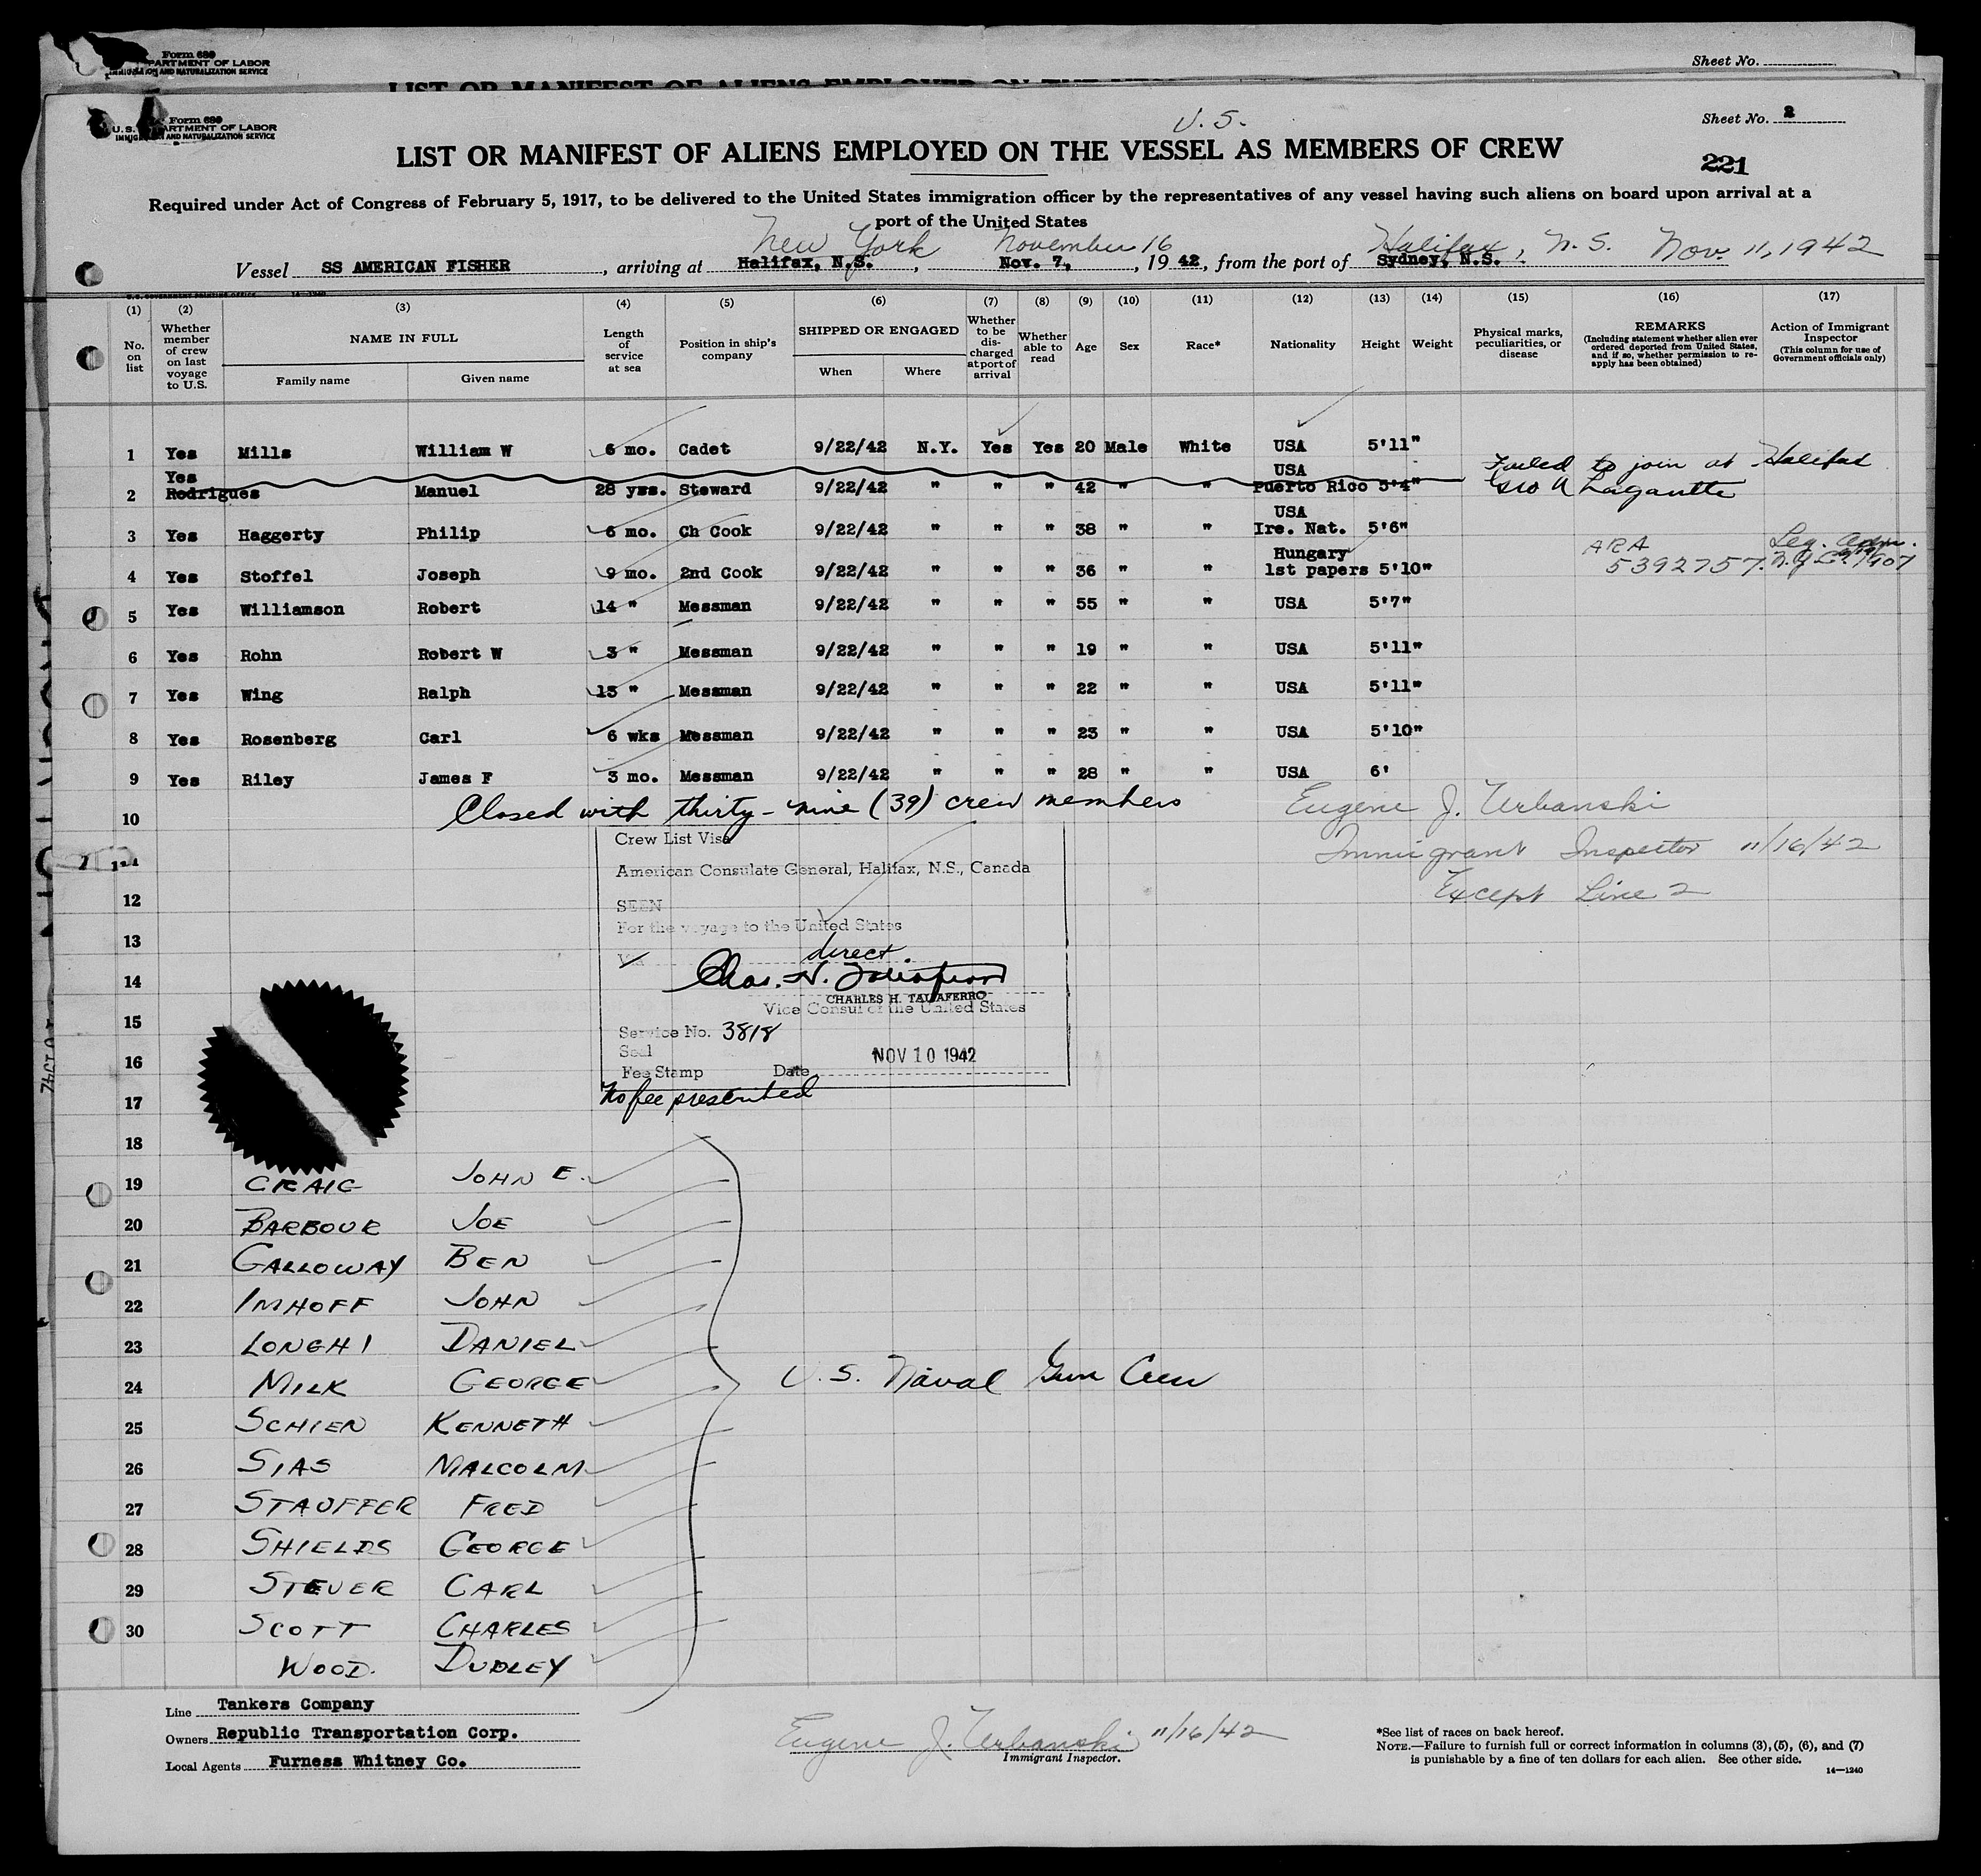 Form 689
PARTMENT OF LABOR
IMMIGRATION AND NATURALIZATION SERVICE
Sheet No.
LIST OR MANIFEST OF ALIENS EMPLOYED ON THE VES
Form 689
U. S. DEPARTMENT OF LABOR
IMMIGRATION AND NATURALIZATION SERVICE
U. S.
Sheet No. 2
LIST OR MANIFEST OF ALIENS EMPLOYED ON THE VESSEL AS MEMBERS OF CREW
221
Required under Act of Congress of February 5, 1917, to be delivered to the United States immigration officer by the representatives of any vessel having such aliens on board upon arrival at a
port of the United States
New York November 16 Halifax, N.S. Nov. 11, 1942
Vessel SS AMERICAN FISHER, arriving at Halifax, N.S., Nov. 7, 19 42, from the port of Sydney, N.S.
U.S. GOVERNMENT PRINTING OFFICE 14-1240
(1) (2) (3) (4) (5) (6) (7) (8) (9) (10) (11) (12) (13) (14) (15) (16) (17)
No. on list
Whether member of crew on last voyage to U.S.
NAME IN FULL
Family name
Given name
Length of service at sea
Position in ship's company
SHIPPED OR ENGAGED
When
Where
Whether to be discharged at port of arrival
Whether able to read
Age
Sex
Race*
Nationality
Height
Weight
Physical marks, peculiarities, or disease
REMARKS
(Including statement whether alien ever ordered deported from United States, and if so, whether permission to re-apply has been obtained)
Action of Immigrant Inspector
(This column for use of Government officials only)
1 Yes Mills William W 6 mo. Cadet 9/22/42 N.Y. Yes Yes 20 Male White USA 5'11"
Yes USA Failed to join at Halifax
2 Rodrigues Manuel 28 yrs. Steward 9/22/42 " " " 42 " " Puerto Rico 5'4"
USA
3 Yes Haggerty Philip 6 mo. Ch Cook 9/22/42 " " " 38 " " Ire. Nat. 5'6"
Hungary ARA Leg. adm.
4 Yes Stoffel Joseph 9 mo. 2nd Cook 9/22/42 " " " 36 " " 1st papers 5'10" 5392757 N.Y. 1907
5 Yes Williamson Robert 14 " Messman 9/22/42 " " " 55 " " USA 5'7"
6 Yes Rohn Robert W 3 " Messman 9/22/42 " " " 19 " " USA 5'11"
7 Yes Wing Ralph 15 " Messman 9/22/42 " " " 22 " " USA 5'11"
8 Yes Rosenberg Carl 6 wks Messman 9/22/42 " " " 23 " " USA 5'10"
9 Yes Riley James F 3 mo. Messman 9/22/42 " " " 28 " " USA 6'
10 Closed with thirty-nine (39) crew members Eugene J. Urbanski
Immigrant Inspector 11/16/42
Except Line 2
Crew List Visa
11 American Consulate General, Halifax, N.S., Canada
12 SEEN
For the voyage to the United States
13 Via direct.
14 Chas. H. Taliaferro
CHARLES H. TALIAFERRO
15 Vice Consul of the United States
Service No. 3818
16 Seal NOV 10 1942
Fee Stamp Date
17 No fee prescribed
18
19 CRAIG JOHN E.
20 BARBOUR JOE
21 GALLOWAY BEN
22 IMHOFF JOHN
23 LONGHI DANIEL
24 MILK GEORGE U. S. Naval Gun Crew
25 SCHIEN KENNETH
26 SIAS MALCOLM
27 STAUFFER FRED
28 SHIELDS GEORGE
29 STEUER CARL
30 SCOTT CHARLES
WOOD. DUDLEY
Line Tankers Company
Owners Republic Transportation Corp.
Local Agents Furness Whitney Co.
Eugene J. Urbanski 11/16/42
Immigrant Inspector.
*See list of races on back hereof.
NOTE.—Failure to furnish full or correct information in columns (3), (5), (6), and (7)
is punishable by a fine of ten dollars for each alien. See other side.
14—1240